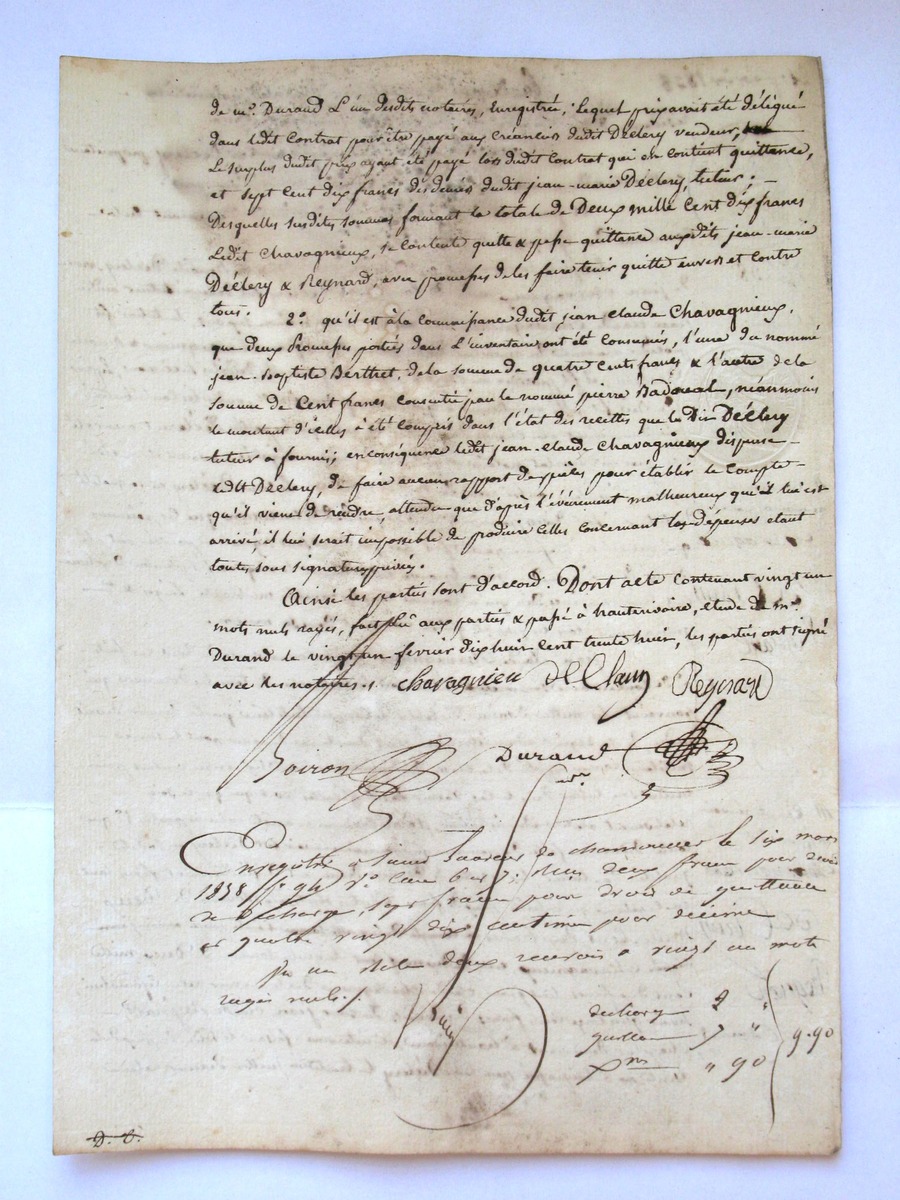 de m.e Durand L'un desdits notaires, Enregistrée, lequel prix avait été délégué
dans ledit Contrat pour être payé aux Créanciers dudit Déclery vendeur,
Le surplus dudit prix ayant été payé lors dudit Contrat qui en contient quittance,
et sept Cent dix francs des deniers dudit jean-marie Déclery, tuteur; —
Desquelles susdites sommes formant le totale de Deux mille Cent dix francs
Ledit Chavagnieux, se contente quitte & passe quittance auxdits jean-marie
Déclery & Reynard, avec promesses de les faire tenir quitte envers et Contre
tous. 2.o qu'il est à la Connaissance dudit jean claude Chavagnieux,
que deux Promesses portées dans L'inventaire ont été, l'une du nommé
jean-Baptiste Berthet, de la somme de quatre Cents francs & l'autre de la
somme de Cent francs consentie par le nommé pierre Badoual, néanmoins
le montant d'icelles à été Compris dans l'état des recettes que le Dit Déclery
tuteur à fournis; en conséquence ledit jean-claude Chavagnieux dispense —
ledit Déclery, de faire aucun rapport de pièces pour établir le Compte —
qu'il vient de rendre, attendu que d'après l'événement malheureux qui lui est
arrivé, il lui serait impossible de produire celles concernant les dépenses étant
toutes sous signatures privées.
Ainsi les parties sont d'accord. Dont acte contenant vingt un
mots nuls rayés, fait lu aux parties & passé à hauterivoire, étude de m.e
Durand le vingt un février dix huit cent trente huit, les parties ont signé
avec les notaires./. Chavagnieu Reynard
Boiron Durand
Enregistré à Saint Laurent de chamousset le six mars
1838 f.o 94 v.o Case 6 et 7. Reçu deux francs pour droit
de décharge, sept francs pour droit de quittance
et quatre vingt dix centimes pour décime
vingt un mots
rayés nuls./.
décharge 2 "
quittance 7 "
" 90
9.90
D. C.